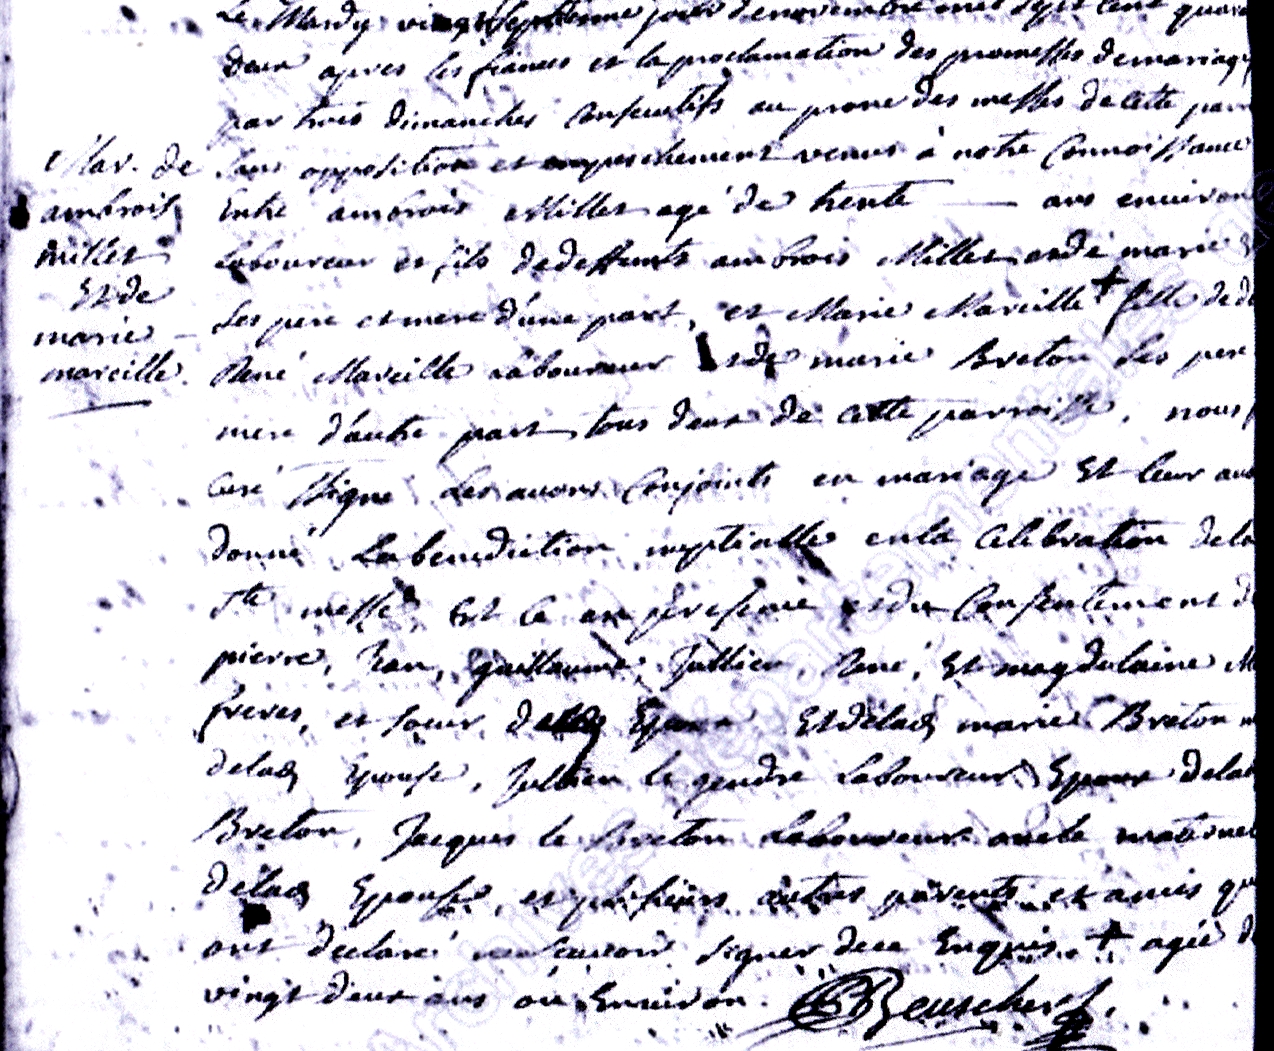 Le Mardy vingt septieme jour de novembre mil sept cent quara
deux apres les fiances et la proclamation des promesses de mariage
par trois dimanches consecutifs au prone des messes de cette parr
sans opposition et empeschement venus à notre connoissance
Entre ambrois Millet agé de trente — ans environ
Laboureur et fils de deffunts ambrois Millet et de marie
ses pere et mere d'une part, et Marie Mareille + fille de d
René Mareille Laboureur et de marie Breton ses per
mere d'autre part tous deux de cette parroisse, nous
curé signe Les avons conjoints en mariage Et leur avo
donné La benediction nuptialle en la Celebration de la
ste messe, Et ce en presence et du Consentement d
pierre, Jean, guillaume, Jullien, René, Et magdelaine M
freres, et soeur Epoux Et de lad marie Breton m
de lad Epouse, Jullien le gendre Laboureur Epoux de lad
Breton, Jacques le Breton Laboureur oncle maternel
de lad Epouse, et plusieurs autres parents et amis qu
ont declaré ne scavoir signer de ce Enquis + agée d
vingt deux ans ou Environ. Beuscher
Mar. de
ambrois
millet
Et de
marie
mareille.